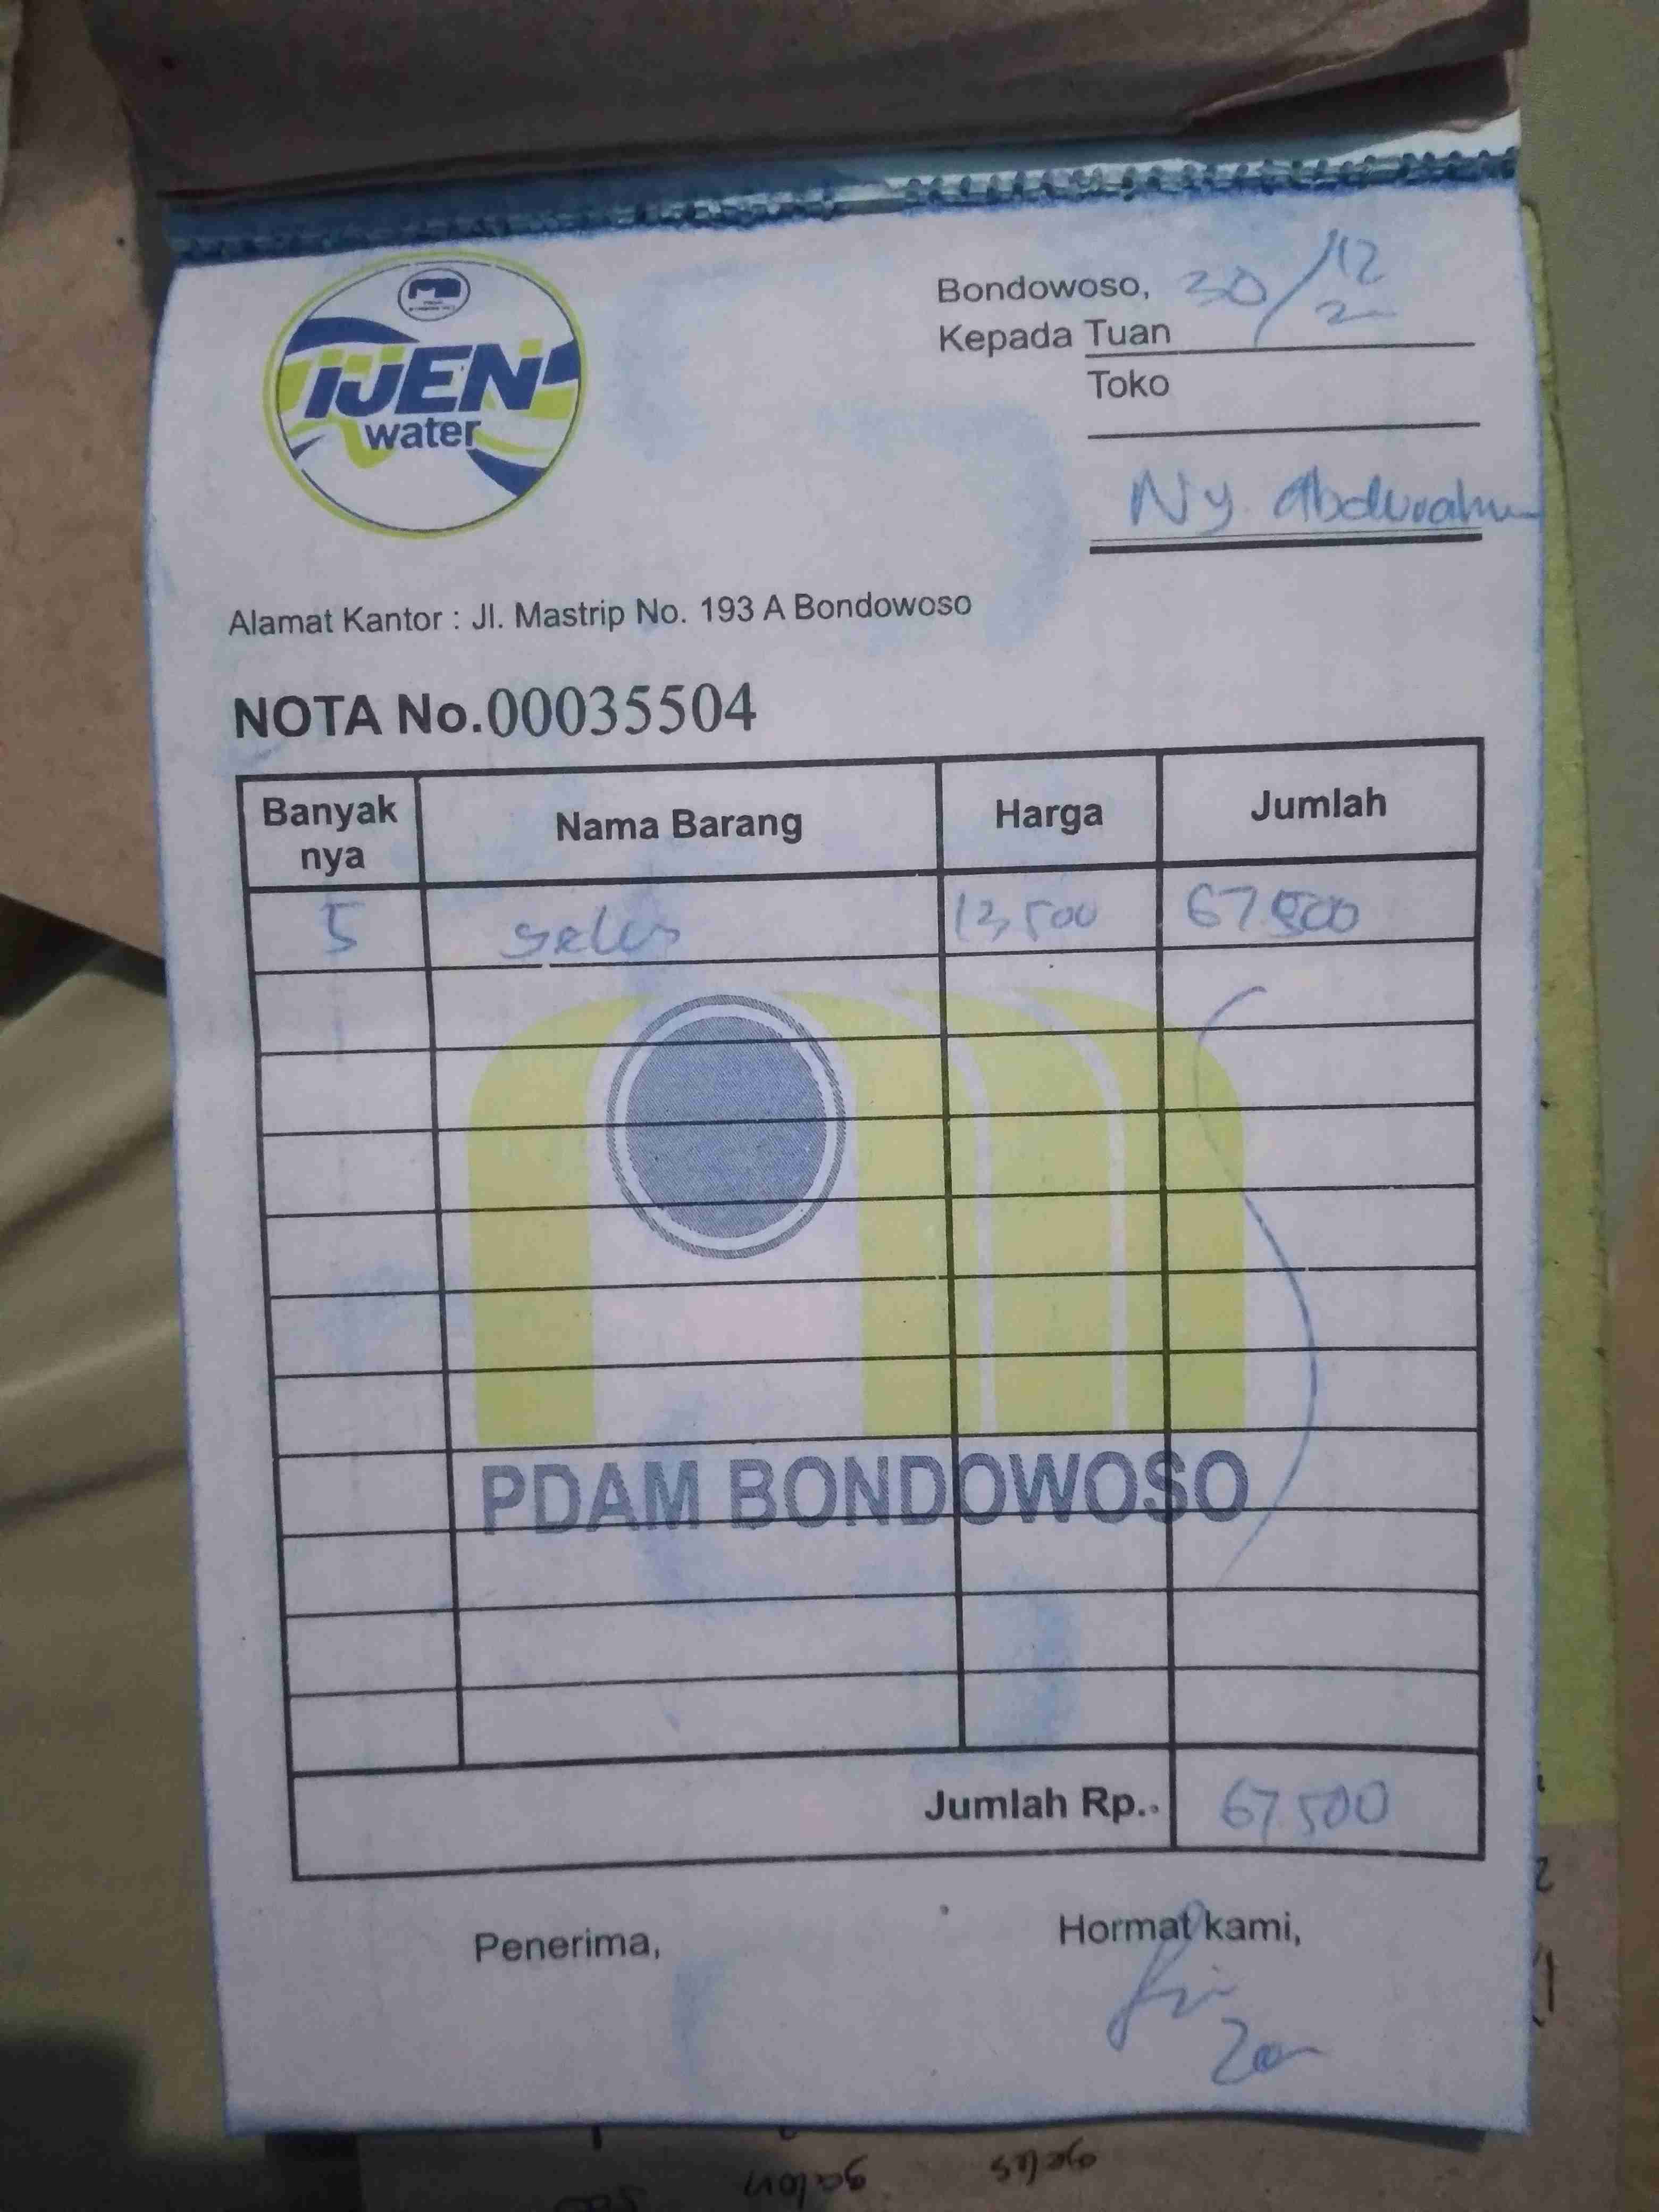 IJEN
water
Bondowoso, 30/12
2
Kepada Tuan
Toko
Ny. Abdurahm
Alamat Kantor : Jl. Mastrip No. 193 A Bondowoso
NOTA No.00035504
Banyak nya Nama Barang Harga Jumlah
5 gelas 13,500 67.500
PDAM BONDOWOSO
Jumlah Rp.. 67.500
Penerima, Hormat kami,
galon gelas